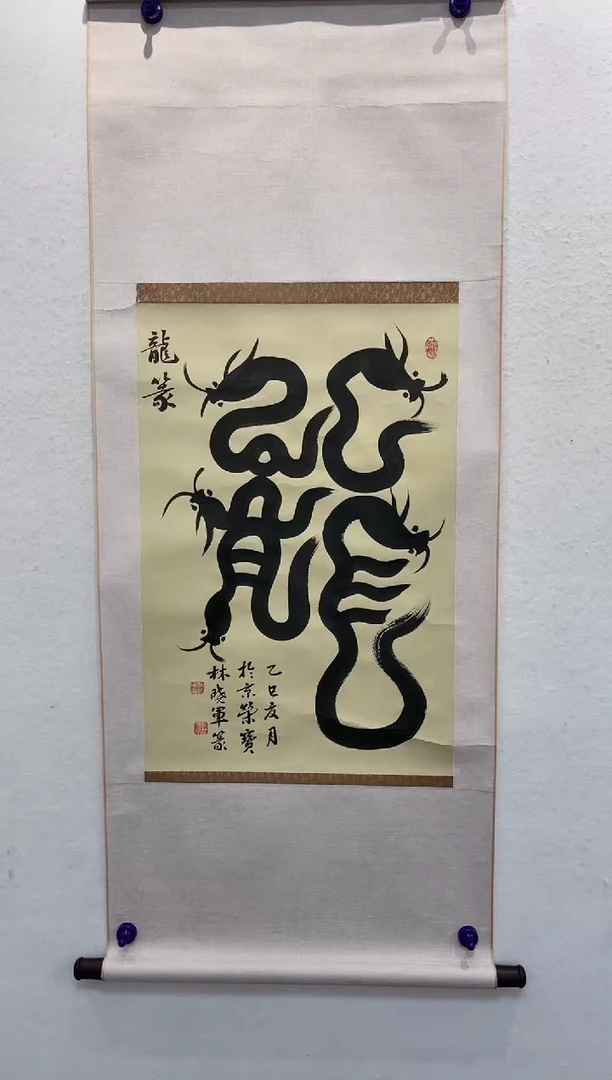 龍
龍篆
乙巳夏月
於京榮寶
林曉軍篆